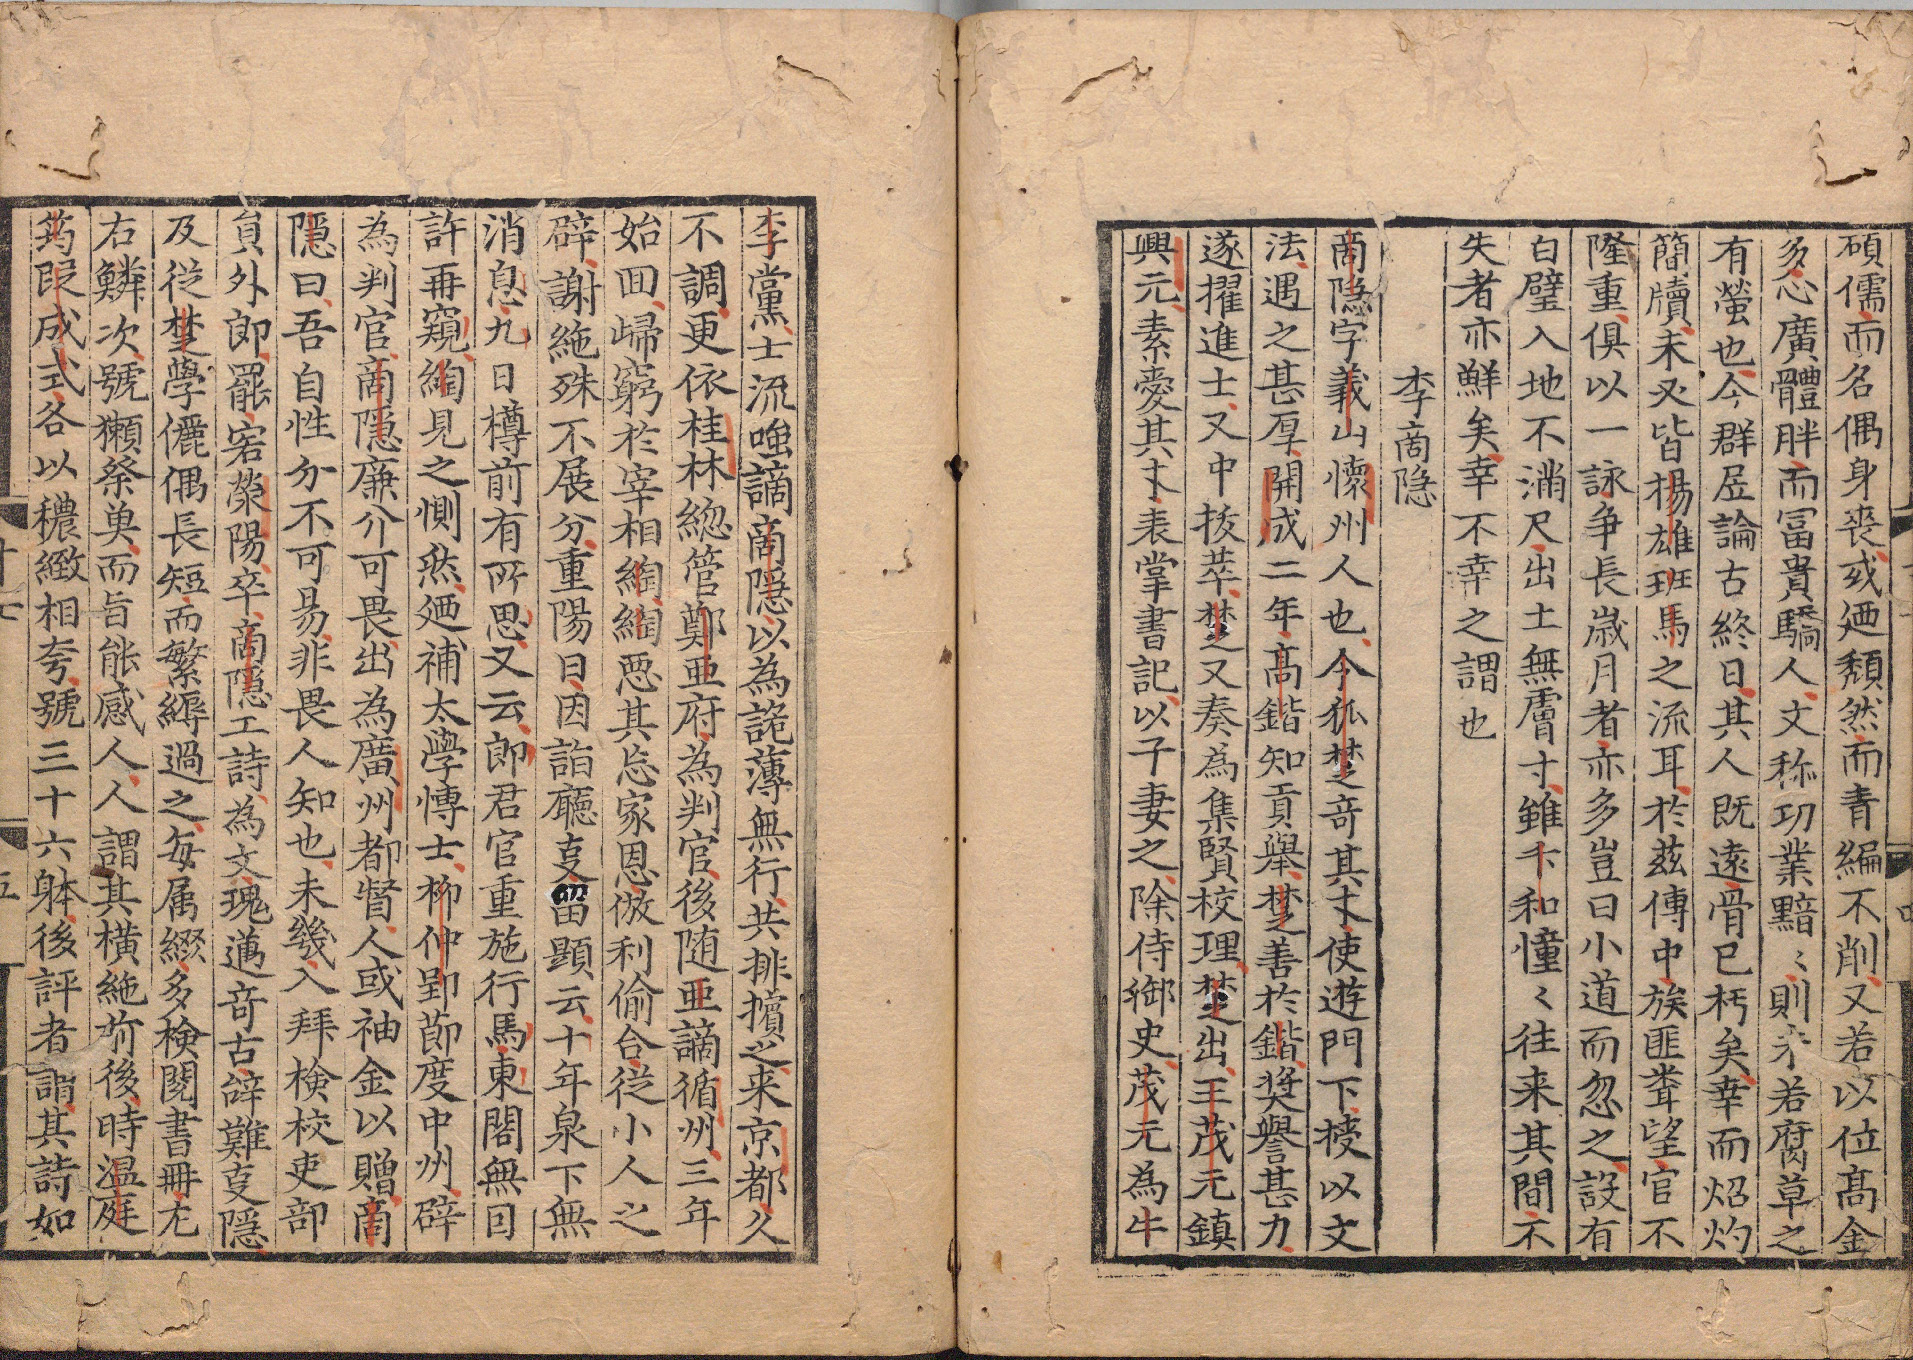 碩儒而名偶身喪或廼頹然而青編不削又若以位髙金
多心廣體胖而冨貴驕人文称功業黯〻則未若腐草之
有螢也今群居論古終日其人既逺骨已朽矣幸而炤灼
簡牘未必皆楊雄班馬之流耳於兹傳中族匪聋望官不
隆重俱以一詠争長歳月者亦多豈曰小道而忽之設有
白璧入地不滿尺出土無膚寸雖卞和憧〻往来其間不
失者亦鮮矣幸不幸之謂也
李商隐
商隐字義山懷州人也令狐楚竒其才使遊門下授以文
法遇之甚厚開成二年髙鍇知貢舉楚善於鍇奨譽甚力
遂擢進士又中抜萃楚又奏為集賢校理楚出王茂元鎮
興元素愛其才表掌書記以子妻之除侍御史茂元為牛
李黨士流嗤謫商隠以為詭薄無行共排擯之来京都久
不調更依桂林総管鄭亜府為判官後随亜謫循州三年
始回歸窮於宰相綯綯悪其忘家恩放利偷合従小人之
辟謝絶殊不展分重陽日因詣廳事留題云十年泉下無
消息九日樽前有所思又云郎君官重施行馬東閣無因
許再窺綯見之惻然廼補太學博士柳仲郢節度中州辟
為判官商隠廉介可畏出為廣州都督人或袖金以贈商
隠曰吾自性分不可易非畏人知也未幾入拜検校吏部
員外郎罷客滎陽卒商隠工詩為文瑰邁竒古辞難事隠
及従楚學儷偶長短而繁縟過之毎属綴多検閲書冊左
右鱗次號獺祭奠而旨能感人人謂其横絶前後時温庭
筠叚成式各以穠緻相夸號三十六躰後評者謂其詩如